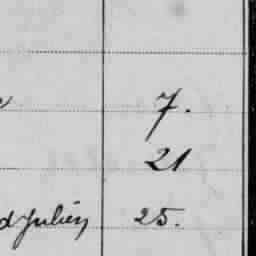 7.
21
d Julien 25.